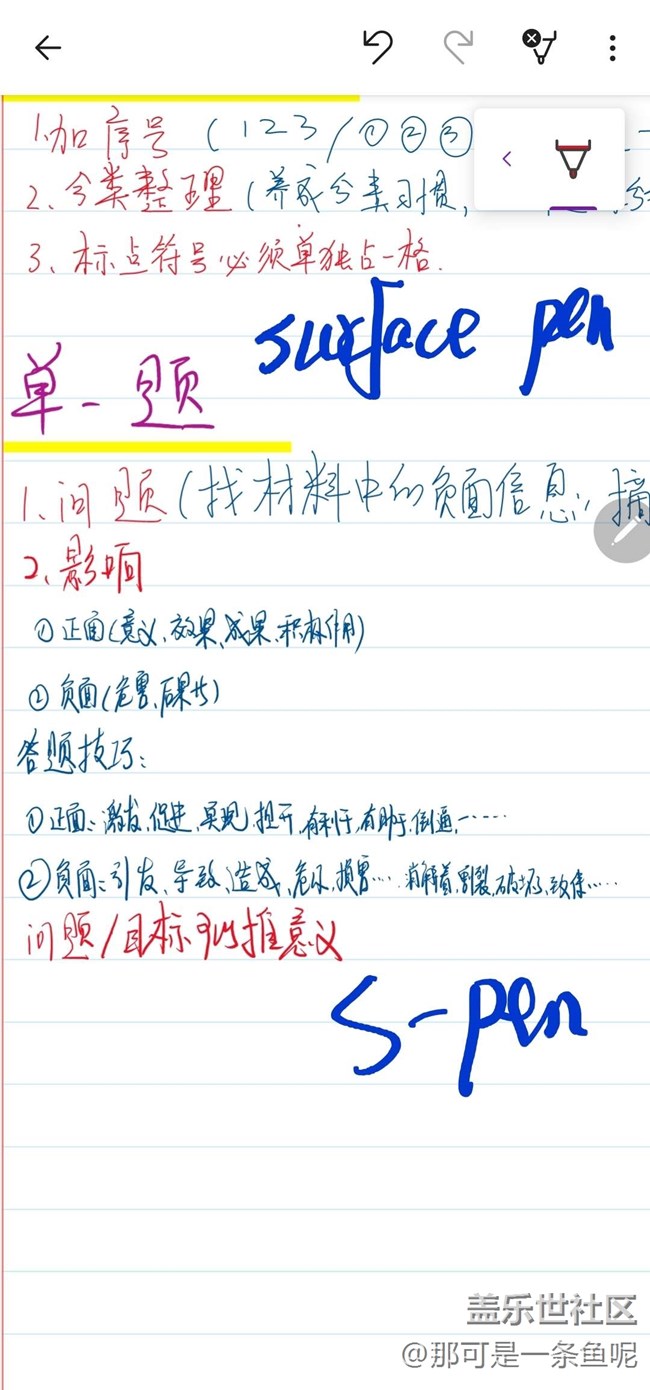 1.加序号(123/①②③
2、分类整理(养成分类习惯,
3、标点符号必须单独占一格.
surface pen
单一题
1、问题(找材料中的负面信息,摘
2、影响
①正面(意义、效果、成果、积极作用)
②负面(危害、后果等)
答题技巧:
①正面:激发,促进,实现,提升,有利于,有助于,倒逼,……
②负面:引发、导致、造成、危及、损害… 割裂,破坏,致使……
问题/目标可以推意义
s-pen
盖乐世社区
@那可是一条鱼呢